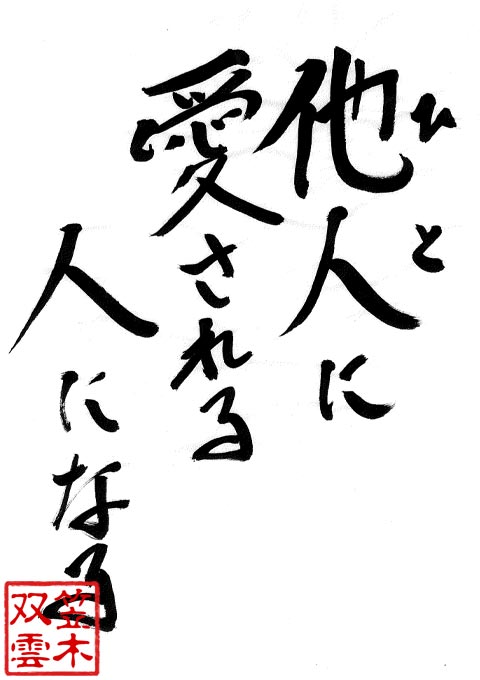 他人に
ひと
愛される
人になる
笠木
双雲